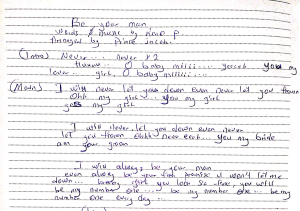 Be your man
words & music by nine P
Arranged by Prince Jacob.
(Intro) Never ... never x2
O baby miiii ... yeeeh You my
lover girl O baby miiiii ....
(Main) I will never let you down even never let you down
Ohh my girl ... you my girl
yes my girl
I will never let you down even never
let you down ohhh never ... You my bride
am your groom
I will always be your man
even always be your promise I won't let me
down ... baby girl you look so fine you will
be my number one ... be my number one ... be my
number one every day ...